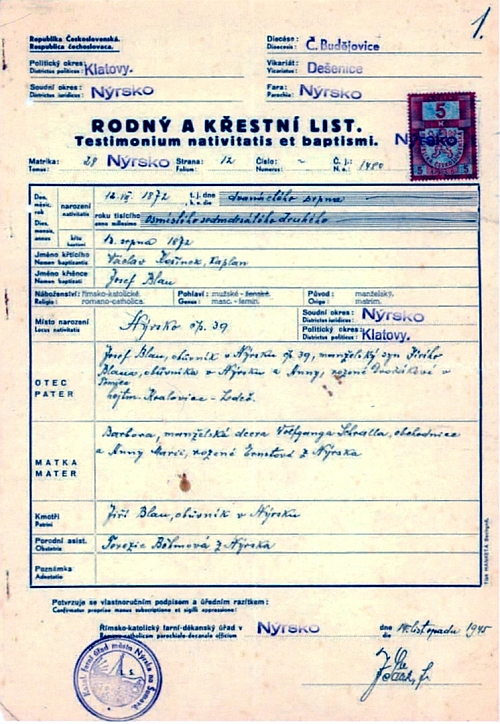 1.
Republika Československá.
Respublica čechoslovaca.
Diecése:
Dioecesis: Č. Budějovice
Politický okres:
Districtus politicus: Klatovy.
Vikariát:
Vicariatus: Dešenice
Soudní okres:
Districtus iuridicus: Nýrsko
Fara:
Parochia: Nýrsko
5
K
5 5
RODNÝ A KŘESTNÍ LIST.
Testimonium nativitatis et baptismi. Nýrsko
Matrika: Strana: Číslo: Č. j.:
Tomus: 29 Nýrsko Folium: 12 Numerus: - N. e.: 1480
Den, měsíc, rok
Dies, mensis, annus
narození
nativitatis
1872 t. j. dne
die dvanáctého srpna
roku tisícího
anno millesimo osmistého sedmdesátého druhého
křtu
baptismi 13. srpna 1872
Jméno křticího
Nomen baptizantis Václav kaplan
Jméno křtěnce
Nomen baptisati Josef Blau
Náboženství: římsko-katolické. Pohlaví: mužské - ženské. Původ: manželský.
Religio: romano-catholica. Genus: masc. - femin. Origo: matrim.
Místo narození
Locus nativitatis Nýrsko čp. 39
Soudní okres:
Districtus iuridicus: Nýrsko
Politický okres:
Districtus politicus: Klatovy.
OTEC
PATER
Josef Blau, obuvník v Nýrsku čp. 39, manželský syn Jiřího
Blaua, obuvníka v Nýrsku a Anny, rozené Dvořákové z
MATKA
MATER
Barbora, manželská dcera Wolfganga Schralla, obchodníka
a Anny Marie, rozené Ernstové z Nýrska
Kmotři
Patrini Jiří Blau, obuvník v Nýrsku
Porodní asist.
Obstetrix Terezie Böhmová z Nýrska
Poznámka
Adnotatio
Potvrzuje se vlastnoručním podpisem a úředním razítkem:
Confirmatur propriae manus subscriptione et sigilli appressione:
Římsko-katolický farní-děkanský úřad v
Romano-catholicum parochiale-decanale officium Nýrsko
dne
die listopadu 1945
Římsk. farní úřad města Nýrska na Šumavě